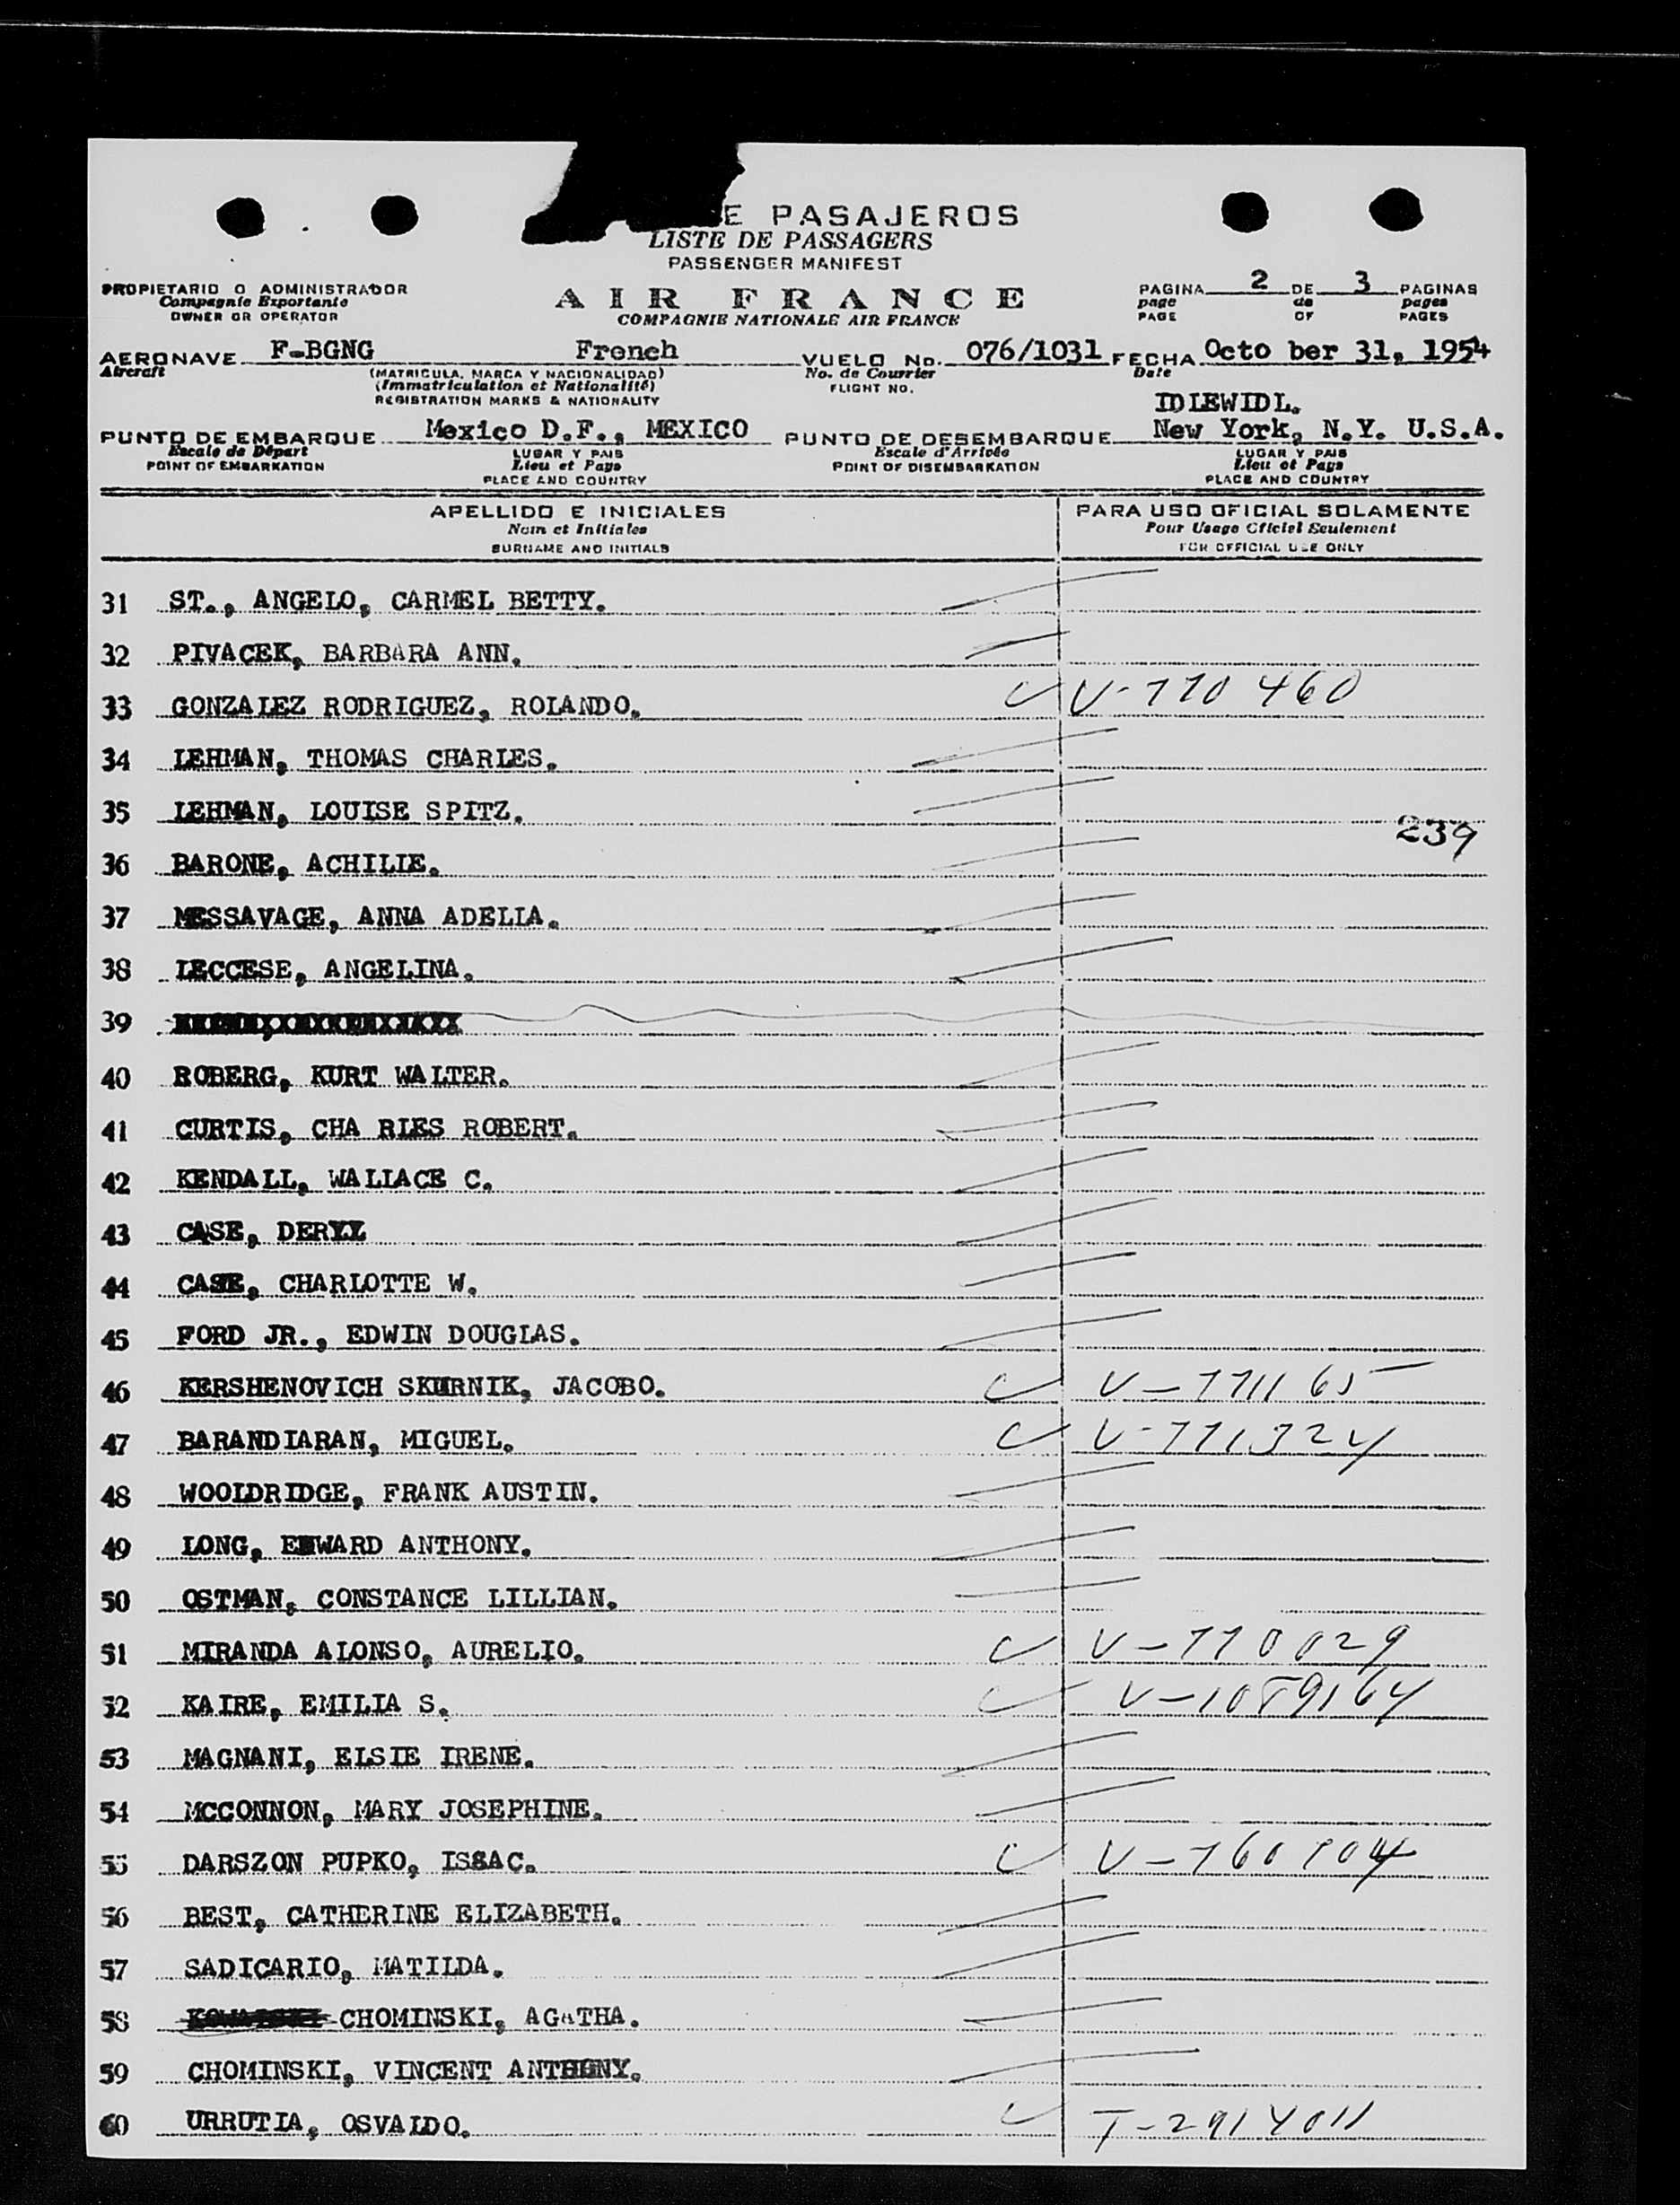 E PASAJEROS
LISTE DE PASSAGERS
PASSENGER MANIFEST
PROPIETARIO O ADMINISTRADOR
Compagnie Exportante
OWNER OR OPERATOR
AIR FRANCE
COMPAGNIE NATIONALE AIR FRANCE
PAGINA 2 DE 3 PAGINAS
page de pages
PAGE OF PAGES
AERONAVE F-BGNG French VUELO No. 076/1031 FECHA Octo ber 31, 1954
Aircraft (MATRICULA, MARCA Y NACIONALIDAD) No. de Courrier Date
(Immatriculation et Nationalité) FLIGHT NO.
REGISTRATION MARKS & NATIONALITY
IDLEWIDL.
PUNTO DE EMBARQUE Mexico D.F., MEXICO PUNTO DE DESEMBARQUE New York, N.Y. U.S.A.
Escale de Départ LUGAR Y PAIS Escale d'Arrivée LUGAR Y PAIS
POINT OF EMBARKATION Lieu et Pays POINT OF DISEMBARKATION Lieu et Pays
PLACE AND COUNTRY PLACE AND COUNTRY
APELLIDO E INICIALES PARA USO OFICIAL SOLAMENTE
Nom et Initiales Pour Usage Officiel Seulement
SURNAME AND INITIALS FOR OFFICIAL USE ONLY
31 ST., ANGELO, CARMEL BETTY.
32 PIVACEK, BARBARA ANN.
33 GONZALEZ RODRIGUEZ, ROLANDO. V-770460
34 LEHMAN, THOMAS CHARLES.
35 LEHMAN, LOUISE SPITZ.
239
36 BARONE, ACHILLE.
37 MESSAVAGE, ANNA ADELIA.
38 LECCESE, ANGELINA.
39
40 ROBERG, KURT WALTER.
41 CURTIS, CHA RLES ROBERT.
42 KENDALL, WALLACE C.
43 CASE, DERYL
44 CASE, CHARLOTTE W.
45 FORD JR., EDWIN DOUGLAS.
46 KERSHENOVICH SKURNIK, JACOBO. V-771165
47 BARANDIARAN, MIGUEL. V-771324
48 WOOLDRIDGE, FRANK AUSTIN.
49 LONG, EDWARD ANTHONY.
50 OSTMAN, CONSTANCE LILLIAN.
51 MIRANDA ALONSO, AURELIO. V-770029
52 KAIRE, EMILIA S. V-1089164
53 MAGNANI, ELSIE IRENE.
54 MCCONNON, MARY JOSEPHINE.
55 DARSZON PUPKO, ISSAC.
56 BEST, CATHERINE ELIZABETH.
57 SADICARIO, MATILDA.
58 CHOMINSKI, AGATHA.
59 CHOMINSKI, VINCENT ANTHONY.
60 URRUTIA, OSVALDO. T-2914011